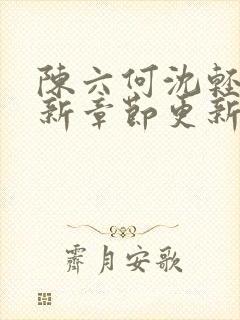 陳六何沈輕
新章節更新
霽月安歌